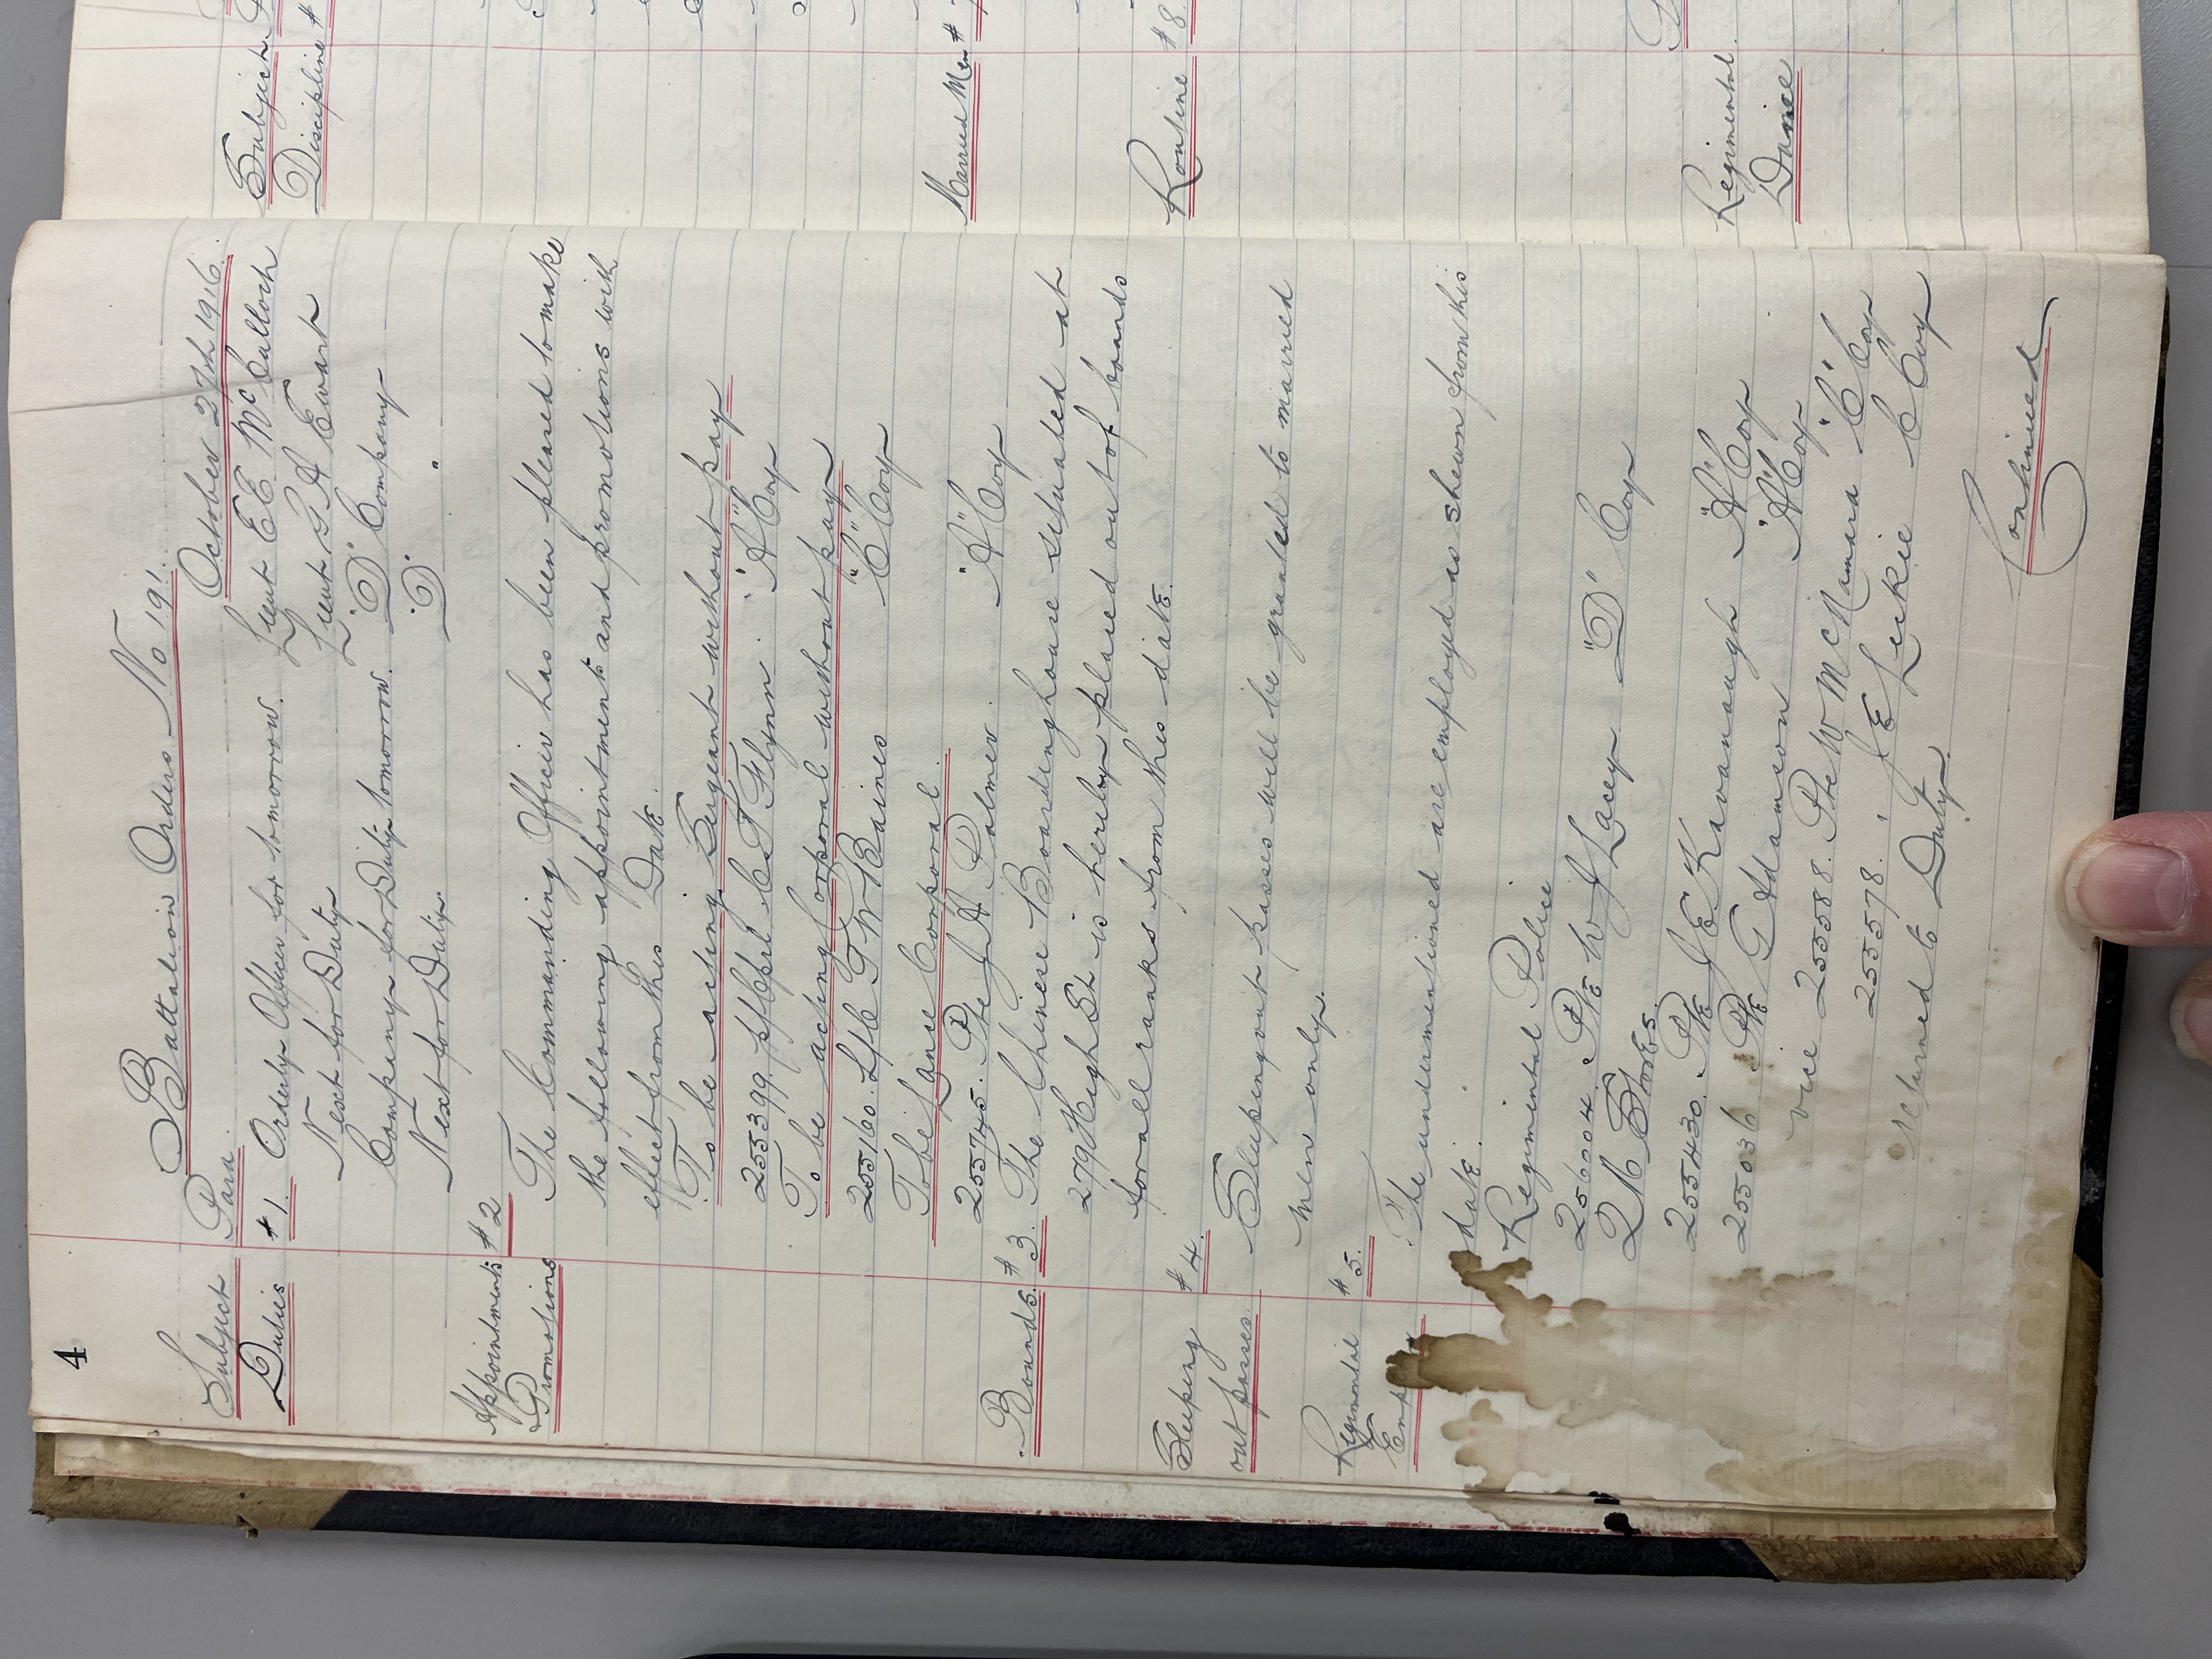 4
Battalion Orders No 191.
Subject Para. October 27th 1916.
Duties #1. Orderly Officer for tomorrow. Lieut E E McCulloch
Next for Duty Lieut G A Ewart
Company for Duty tomorrow. "D" Company
Next for Duty. "D" "
Appointments #2
Promotions The Commanding Officer has been pleased to make
the following appointments and promotions with
effect from this Date.
To be acting Sergeant without pay
255399. p/l/Cpl C T Flynn. "A" Coy
To be acting Corporal without pay
255160. L/C G W Baines "C" Coy
To be Lance Corporal.
255745. Pte J A Palmer. "A" Coy
Bounds. #3. The Chinese Boardinghouse situated at
279 High St is hereby placed out of bounds
for all ranks from this date.
Sleeping #4.
out passes. Sleeping out passes will be granted to married
men only.
Regimental #5.
Emp The undermentioned are employed as shewn from this
date.
Regimental Police
256004. Pte W J Lacey "D" Coy
Q M Stores.
255430. Pte J E Kavanaugh "A" Coy
255036 Pte G Adamson "A" Coy
vice 255588. Pte W McNamara "C" Coy
255578. " J E Leckie C Coy
returned to Duty.
Continued
Subject.
Discipline #
Married Men #
Routine #8.
Regimental.
Dance